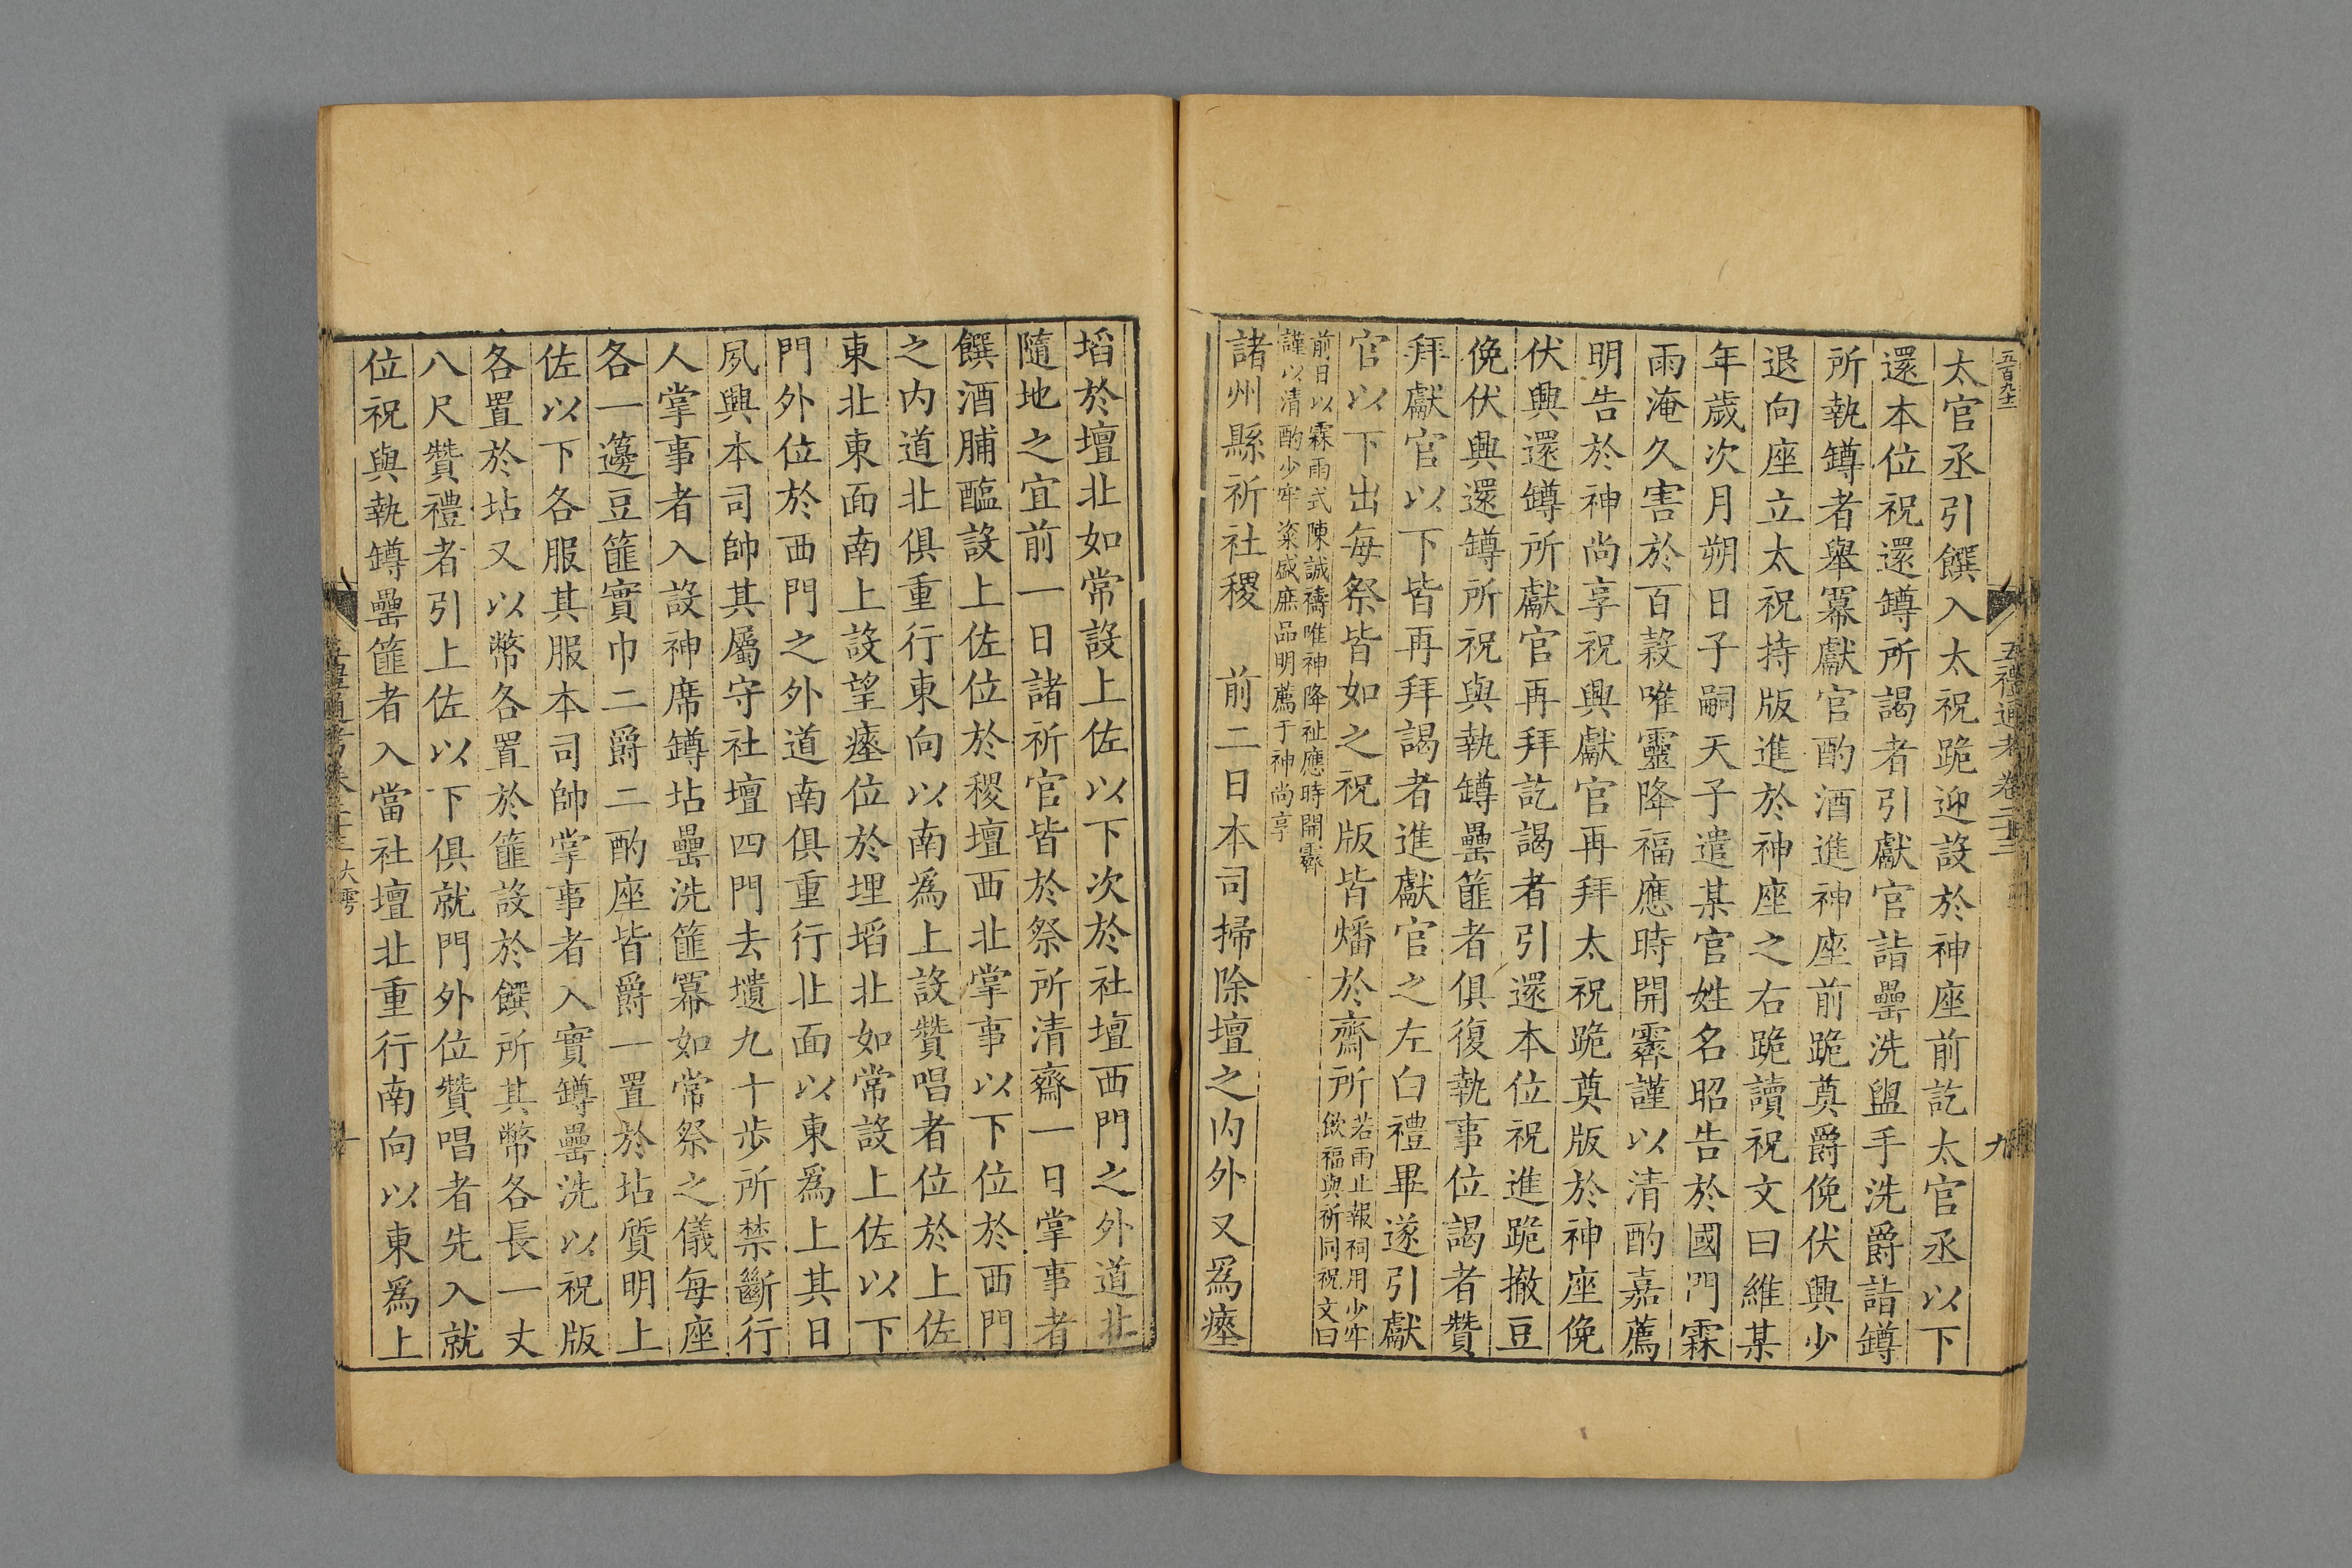 五禮通考卷二十二
九
太官丞引饌入太祝跪迎設於神座前訖太官丞以下
還本位祝還罇所謁者引獻官詣罍洗盥手洗爵詣罇
所執罇者舉冪獻官酌酒進神座前跪奠爵俛伏興少
退向座立太祝持版進於神座之右跪讀祝文曰維某
年歲次月朔日子嗣天子遣某官姓名昭告於國門霖
雨淹久害於百穀唯靈降福應時開霽謹以清酌嘉薦
明告於神尚享祝興獻官再拜太祝跪奠版於神座俛
伏興還罇所獻官再拜訖謁者引還本位祝進跪撤豆
俛伏興還罇所祝與執罇罍篚者俱復執事位謁者贊
拜獻官以下皆再拜謁者進獻官之左白禮畢遂引獻
官以下出每祭皆如之祝版皆燔於齋所若雨止報祠用少牢
飲福與祈同祝文曰
前日以霖雨式陳誠禱唯神降祉應時開霽
謹以清酌少牢粢盛庶品明薦于神尚享
諸州縣祈社稷　前二日本司掃除壇之内外又爲瘞
埳於壇北如常設上佐以下次於社壇西門之外道北
隨地之宜前一日諸祈官皆於祭所清齋一日掌事者
饌酒脯醢設上佐位於稷壇西北掌事以下位於西門
之内道北俱重行東向以南爲上設贊唱者位於上佐
東北東面南上設望瘞位於埋埳北如常設上佐以下
門外位於西門之外道南俱重行北面以東爲上其日
夙興本司帥其屬守社壇四門去壝九十步所禁斷行
人掌事者入設神席罇坫罍洗篚冪如常祭之儀每座
各一籩豆篚實巾二爵二酌座皆爵一置於坫質明上
佐以下各服其服本司帥掌事者入實罇罍洗以祝版
各置於坫又以幣各置於篚設於饌所其幣各長一丈
八尺贊禮者引上佐以下俱就門外位贊唱者先入就
位祝與執罇罍篚者入當社壇北重行南向以東爲上
大雩